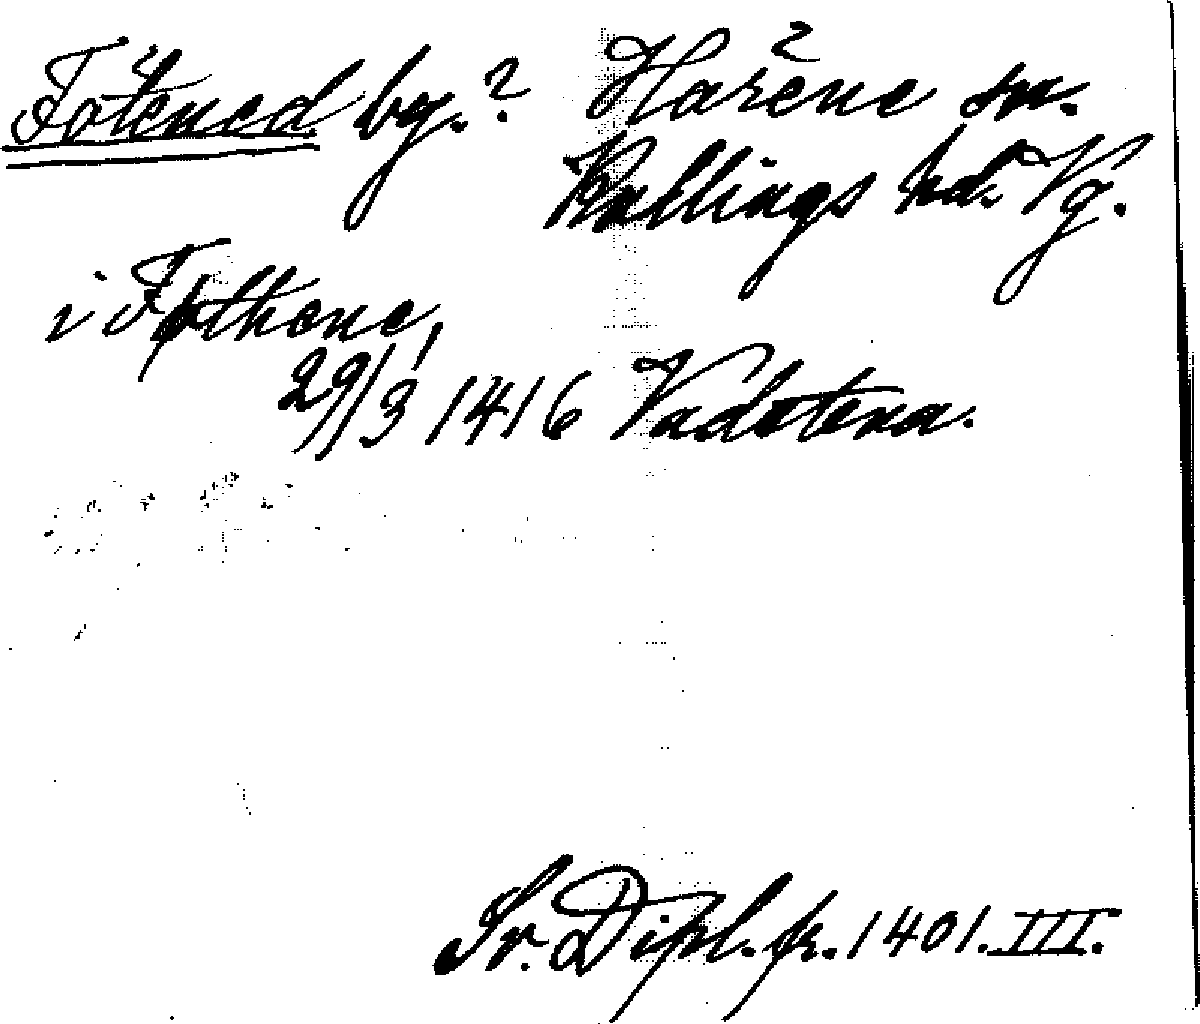 Fötened bg.? Härene sn.
Kållings hd. Vg.
i Føthene,
29/3 1416 Vadstena.
Sv. Dipl. fr. 1401. III.